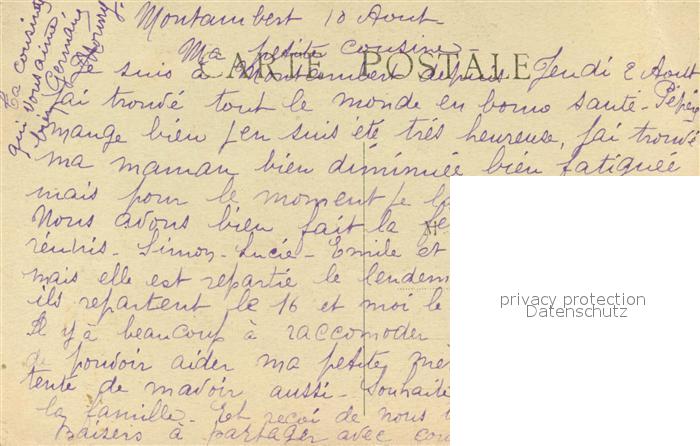 Montambert 10 Aout
Ma petite cousine
CARTE POSTALE
Je suis à Montambert depuis Jeudi 2 Aout
j'ai trouvé tout le monde en bonne santé - Pépée
mange bien j'en suis été très heureuse, j'ai trouvé
ma maman bien diminuée bien fatiguée
mais pour le moment je
Nous avons bien fait la
réunis - Simon - Lucie - Emile et
mais elle est repartie le lendem
ils repartent le 16 et moi le
Il y à beaucoup à raccomoder
de pouvoir aider ma petite
tente de m'avoir aussi - Souhaite
la famille - Et reçoi de nous
Baisers à partager avec
Ta cousine
qui
bien Germaine
privacy protection
Datenschutz